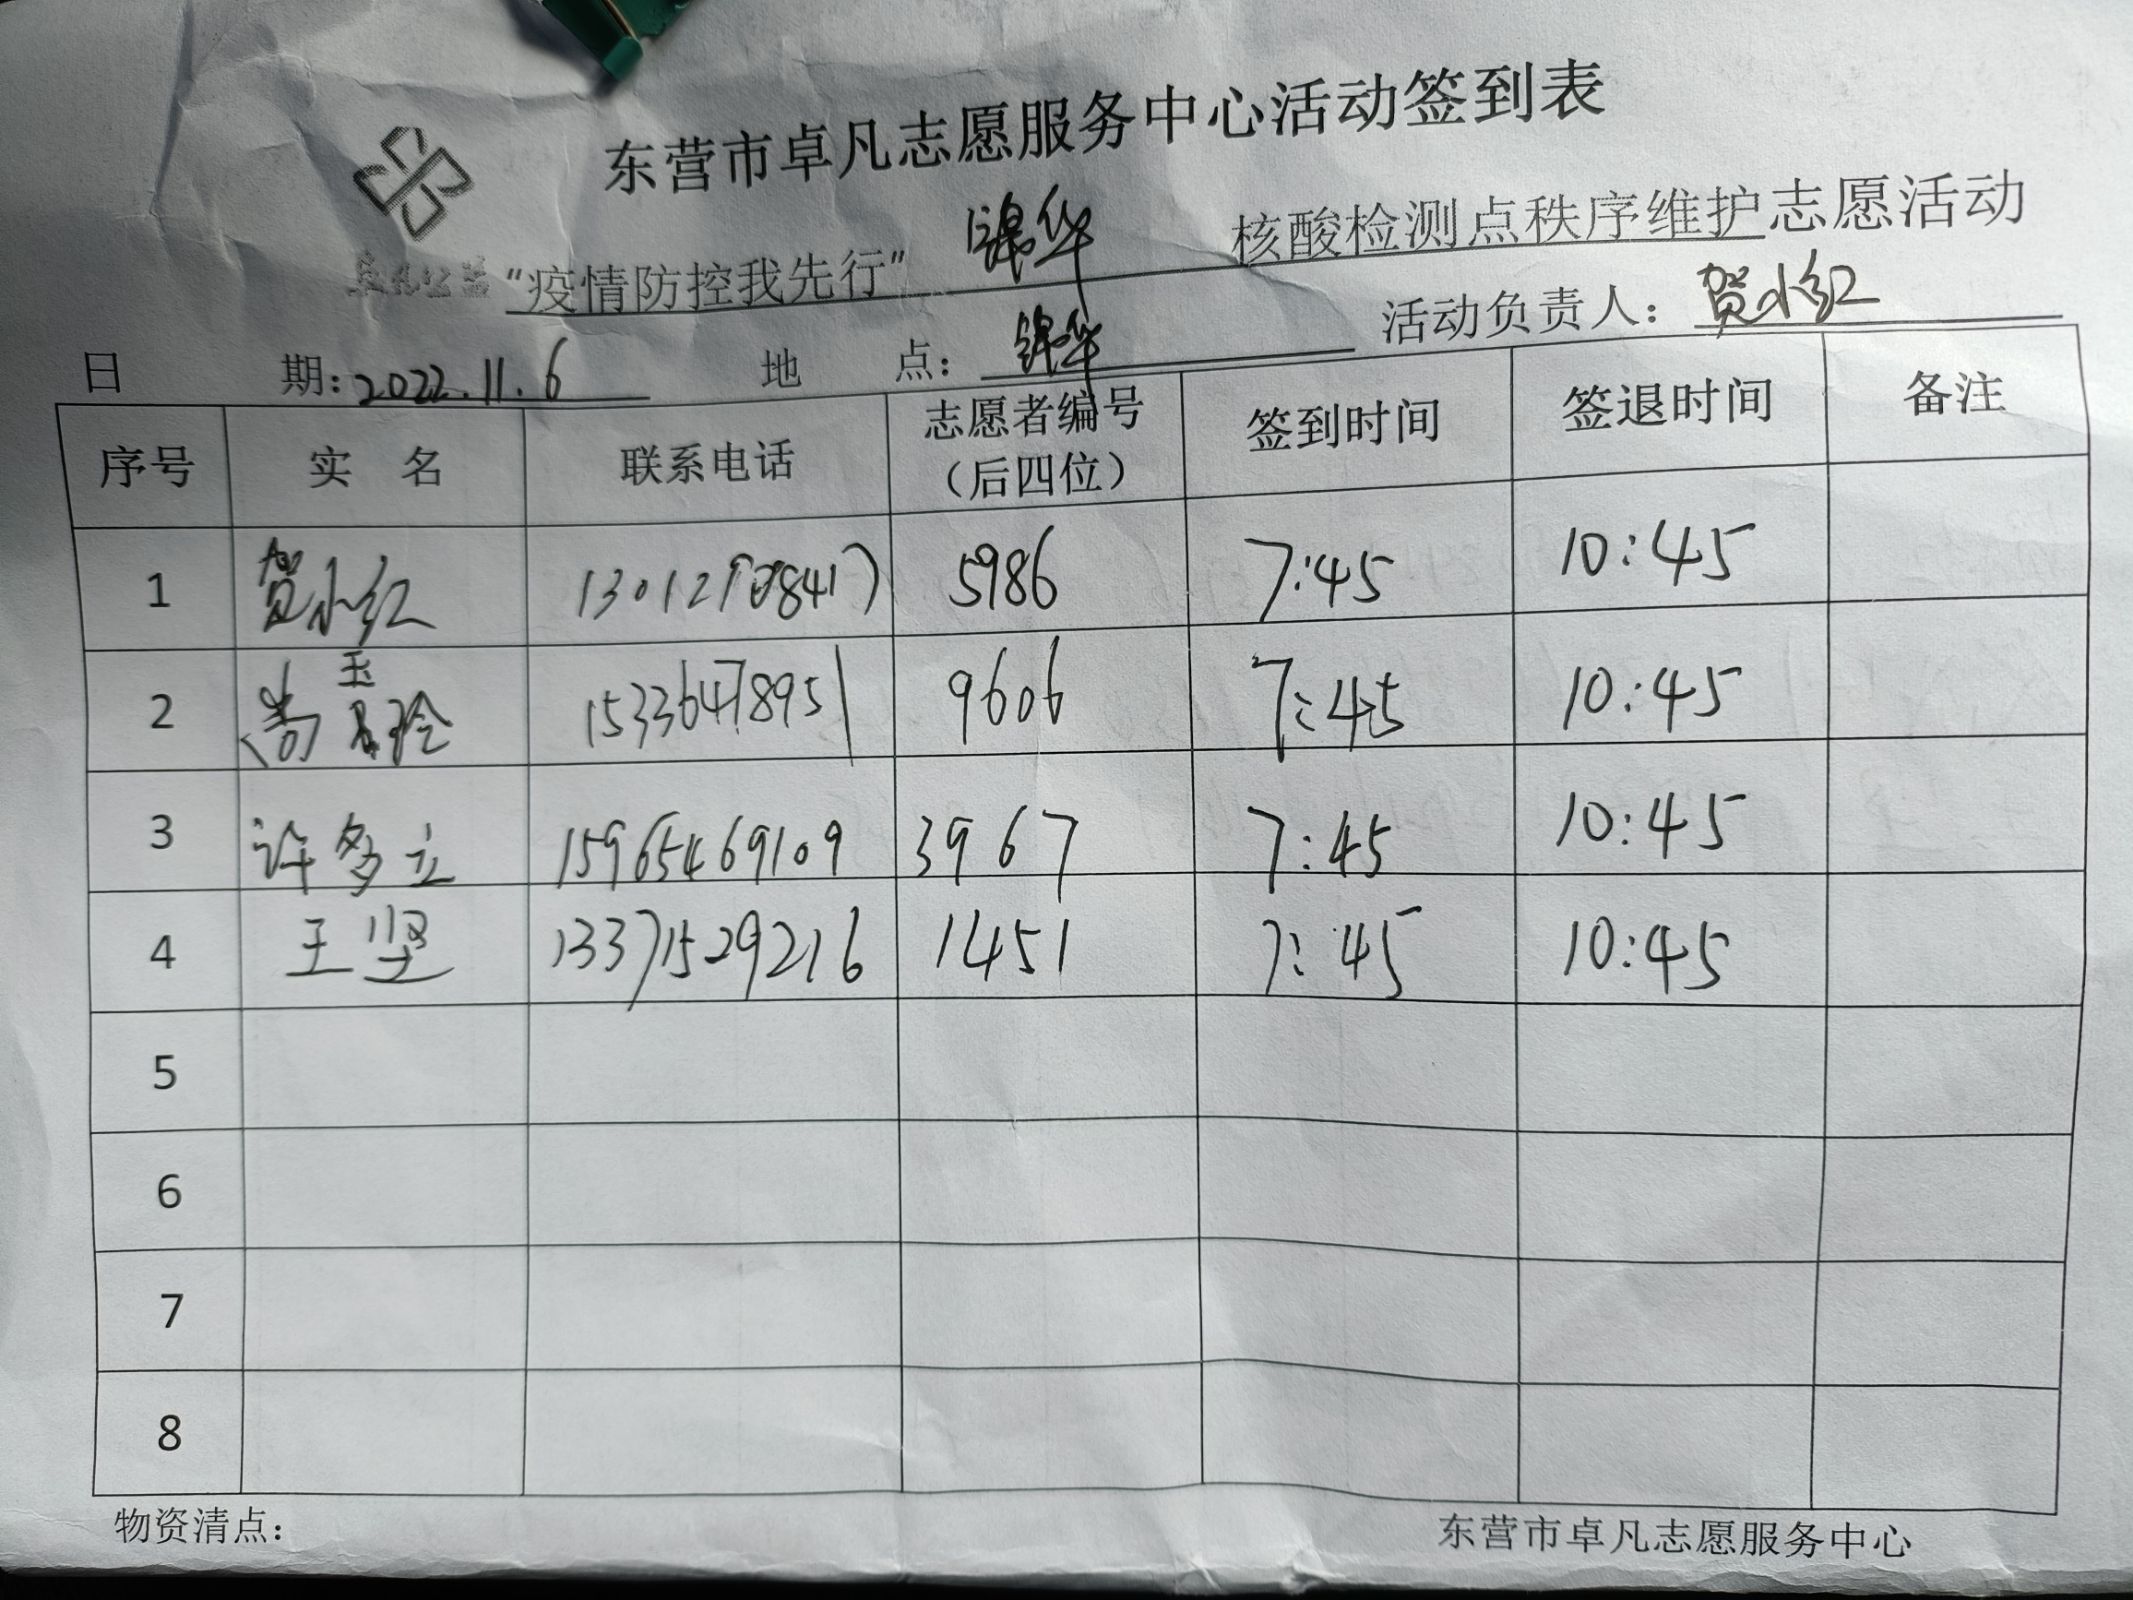 东营市卓凡志愿服务中心活动签到表
卓凡公益 “疫情防控我先行” 锦华 核酸检测点秩序维护志愿活动
日 期：2022.11.6 地 点：锦华 活动负责人：贺小红
序号 实 名 联系电话 志愿者编号（后四位） 签到时间 签退时间 备注
1 贺小红 5986 7:45 10:45
2 尚玉玲 15336478951 9606 7:45 10:45
3 许多立 15965469109 3967 7:45 10:45
4 王坚 13371529216 1451 7:45 10:45
5
6
7
8
物资清点： 东营市卓凡志愿服务中心